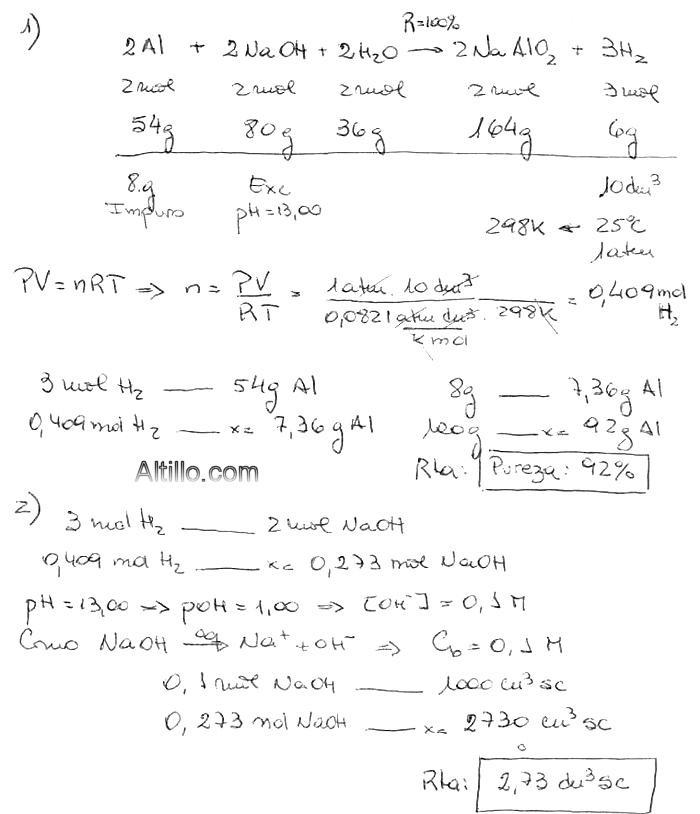 1)
R=100%
2Al + 2NaOH + 2H₂O → 2NaAlO₂ + 3H₂
2mol 2mol 2mol 2mol 3mol
54g 80g 36g 164g 6g
8g Exc 10dm³
Impuro pH=13,00 298K ← 25°C
1atm
PV=nRT ⇒ n = PV/RT = 1atm. 10dm³ / 0,0821 atm dm³/K mol . 298K = 0,409mol H₂
3 mol H₂ —— 54g Al 8g —— 7,36g Al
0,409mol H₂ —— x= 7,36g Al 100g —— x= 92g Al
Altillo.com Rta: Pureza: 92%
2) 3 mol H₂ —— 2mol NaOH
0,409 mol H₂ —— x= 0,273 mol NaOH
pH=13,00 ⇒ pOH=1,00 ⇒ [OH⁻]=0,1M
Como NaOH aq→ Na⁺ + OH⁻ ⇒ Cb=0,1M
0,1mol NaOH —— 1000 cm³ sc
0,273 mol NaOH —— x= 2730 cm³ sc
o
Rta: 2,73 dm³ sc